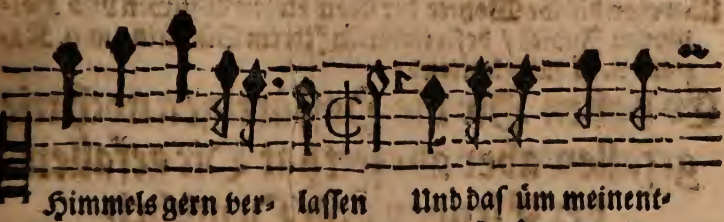 Himmels gern ver- laſſen Und daſ üm meinent-